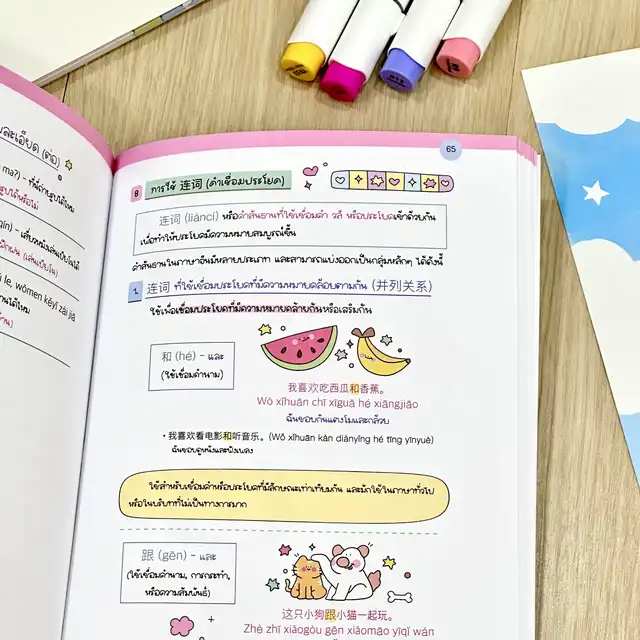 ละเอียด (ต่อ)
ma?) - ที่นี่ถ่ายรูปได้ไหม
รูปได้หรือไม่
le. wǒmen kěyǐ zài jiā
65
8 การใช้ 连词 (คำเชื่อมประโยค)
连词 (liáncí) หรือคำสันธานที่ใช้เชื่อมคำ วลี หรือประโยคเข้าด้วยกัน
เพื่อทำให้ประโยคมีความหมายสมบูรณ์ขึ้น
คำสันธานในภาษาจีนมีหลายประเภท และสามารถแบ่งออกเป็นกลุ่มหลักๆ ได้ดังนี้
1. 连词 ที่ใช้เชื่อมประโยคที่มีความหมายคล้อยตามกัน (并列关系)
ใช้เพื่อเชื่อมประโยคที่มีความหมายคล้ายกันหรือเสริมกัน
和 (hé) - และ
(ใช้เชื่อมคำนาม)
我喜欢吃西瓜和香蕉。
Wǒ xǐhuān chī xīguā hé xiāngjiāo
ฉันชอบกินแตงโมและกล้วย
• 我喜欢看电影和听音乐。(Wǒ xǐhuān kàn diànyǐng hé tīng yīnyuè)
ฉันชอบดูหนังและฟังเพลง
ใช้สำหรับเชื่อมคำหรือประโยคที่มีลักษณะเท่าเทียมกัน และมักใช้ในภาษาทั่วไป
หรือในบริบทที่ไม่เป็นทางการมาก
跟 (gēn) - และ
(ใช้เชื่อมคำนาม, การกระทำ,
หรือความสัมพันธ์)
这只小狗跟小猫一起玩。
Zhè zhī xiǎogǒu gēn xiǎomāo yīqǐ wán